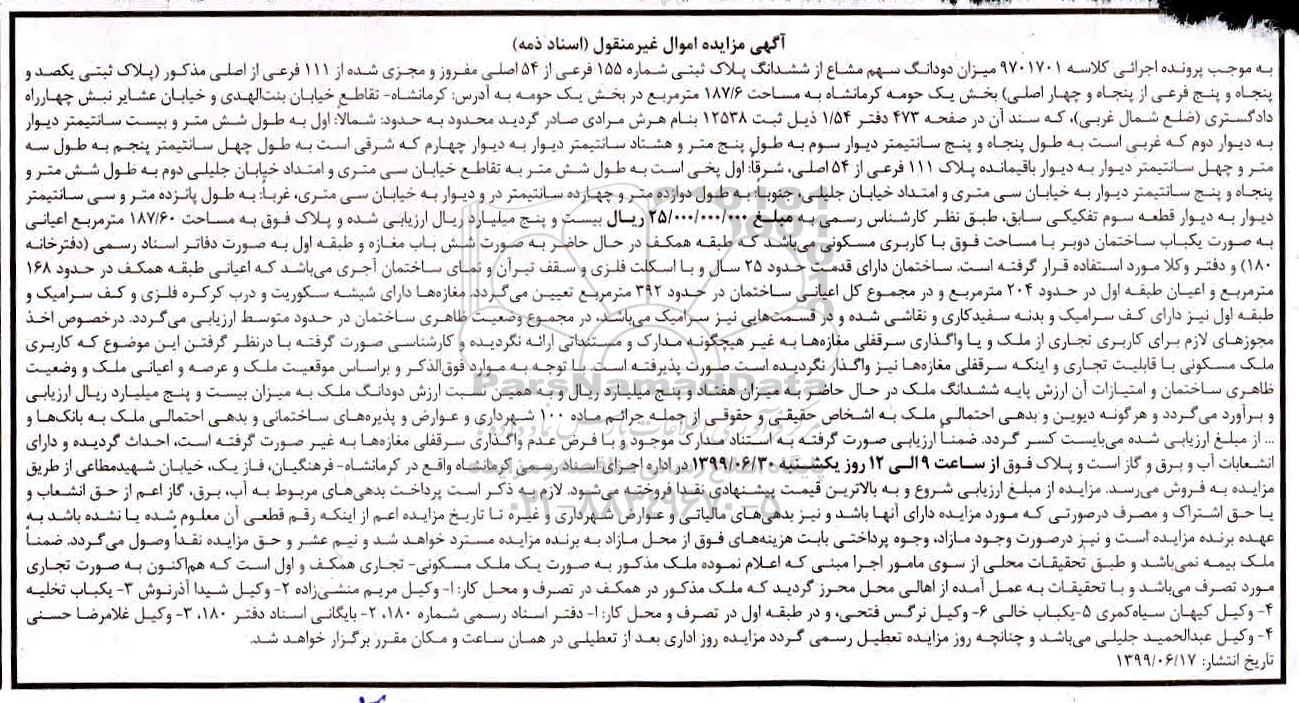 آگهی مزایده اموال غیرمنقول (اسناد ذمه)
به موجب پرونده اجرائی کلاسه ۹۷۰۱۷۰۱ میزان دودانگ سهم مشاع از ششدانگ پلاک ثبتی شماره ۱۵۵ فرعی از ۵۴ اصلی مفروز و مجزی شده از ۱۱۱ فرعی از اصلی مذکور (پلاک ثبتی یکصد و
پنجاه و پنج فرعی از پنجاه و چهار اصلی) بخش یک حومه کرمانشاه به مساحت ۱۸۷/۶ مترمربع در بخش یک حومه به آدرس: کرمانشاه- تقاطع خیابان بنت‌الهدی و خیابان عشایر نبش چهارراه
دادگستری (ضلع شمال غربی)، که سند آن در صفحه ۴۷۳ دفتر ۱/۵۴ ذیل ثبت ۱۲۵۳۸ بنام هرش مرادی صادر گردید محدود به حدود: شمالاً: اول به طول شش متر و بیست سانتیمتر دیوار
به دیوار دوم که غربی است به طول پنجاه و پنج سانتیمتر دیوار سوم به طول پنج متر و هشتاد سانتیمتر دیوار به دیوار چهارم که شرقی است به طول چهل سانتیمتر پنجم به طول سه
متر و چهل سانتیمتر دیوار به دیوار باقیمانده پلاک ۱۱۱ فرعی از ۵۴ اصلی، شرقاً: اول پخی است به طول شش متر به تقاطع خیابان سی متری و امتداد خیابان جلیلی دوم به طول شش متر و
پنجاه و پنج سانتیمتر دیوار به خیابان سی متری و امتداد خیابان جلیلی، جنوبا: به طول دوازده متر و چهارده سانتیمتر در و دیوار به خیابان سی متری، غرباً: به طول پانزده متر و سی سانتیمتر
دیوار به دیوار قطعه سوم تفکیکی سابق، طبق نظر کارشناس رسمی به مبلغ ۲۵/۰۰۰/۰۰۰/۰۰۰ ریال بیست و پنج میلیارد ریال ارزیابی شده و پلاک فوق به مساحت ۱۸۷/۶۰ مترمربع اعیانی
به صورت یکباب ساختمان دوبر با مساحت فوق با کاربری مسکونی می‌باشد که طبقه همکف در حال حاضر به صورت شش باب مغازه و طبقه اول به صورت دفاتر اسناد رسمی (دفترخانه
۱۸۰) و دفتر وکلا مورد استفاده قرار گرفته است. ساختمان دارای قدمت حدود ۲۵ سال و با اسکلت فلزی و سقف تیرآن و نمای ساختمان آجری می‌باشد که اعیانی طبقه همکف در حدود ۱۶۸
مترمربع و اعیان طبقه اول در حدود ۲۰۴ مترمربع و در مجموع کل اعیانی ساختمان در حدود ۳۹۲ مترمربع تعیین می‌گردد. مغازه‌ها دارای شیشه سکوریت و درب کرکره فلزی و کف سرامیک و
طبقه اول نیز دارای کف سرامیک و بدنه سفیدکاری و نقاشی شده و در قسمت‌هایی نیز سرامیک می‌باشد، در مجموع وضعیت ظاهری ساختمان در حدود متوسط ارزیابی می‌گردد. درخصوص اخذ
مجوزهای لازم برای کاربری تجاری از ملک و یا واگذاری سرقفلی مغازه‌ها به غیر هیچگونه مدارک و مستنداتی ارائه نگردیده و کارشناسی صورت گرفته با درنظر گرفتن این موضوع که کاربری
ملک مسکونی با قابلیت تجاری و اینکه سرقفلی مغازه‌ها نیز واگذار نگردیده است صورت پذیرفته است. با توجه به موارد فوق‌الذکر و براساس موقعیت ملک و عرصه و اعیانی ملک و وضعیت
ظاهری ساختمان و امتیازات آن ارزش پایه ششدانگ ملک در حال حاضر به میزان هفتاد و پنج میلیارد ریال و به همین نسبت ارزش دودانگ ملک به میزان بیست و پنج میلیارد ریال ارزیابی
و برآورد می‌گردد و هرگونه دیوین و بدهی احتمالی ملک به اشخاص حقیقی و حقوقی از جمله جرائم ماده ۱۰۰ شهرداری و عوارض و پذیره‌های ساختمانی و بدهی احتمالی ملک به بانک‌ها و
... از مبلغ ارزیابی شده می‌بایست کسر گردد. ضمناً ارزیابی صورت گرفته به استناد مدارک موجود و با فرض عدم واگذاری سرقفلی مغازه‌ها به غیر صورت گرفته است، احداث گردیده و دارای
انشعابات آب و برق و گاز است و پلاک فوق از ساعت ۹ الی ۱۲ روز یکشنبه ۱۳۹۹/۰۶/۳۰ در اداره اجرای اسناد رسمی کرمانشاه واقع در کرمانشاه- فرهنگیان، فاز یک، خیابان شهیدمطاعی از طریق
مزایده به فروش می‌رسد. مزایده از مبلغ ارزیابی شروع و به بالاترین قیمت پیشنهادی نقدا فروخته می‌شود. لازم به ذکر است پرداخت بدهی‌های مربوط به آب، برق، گاز اعم از حق انشعاب و
یا حق اشتراک و مصرف درصورتی که مورد مزایده دارای آنها باشد و نیز بدهی‌های مالیاتی و عوارض شهرداری و غیره تا تاریخ مزایده اعم از اینکه رقم قطعی آن معلوم شده یا نشده باشد به
عهده برنده مزایده است و نیز درصورت وجود مازاد، وجوه پرداختی بابت هزینه‌های فوق از محل مازاد به برنده مزایده مسترد خواهد شد و نیم عشر و حق مزایده نقداً وصول می‌گردد. ضمناً
ملک بیمه نمی‌باشد و طبق تحقیقات محلی از سوی مامور اجرا مبنی که اعلام نموده ملک مذکور به صورت یک ملک مسکونی- تجاری همکف و اول است که هم‌اکنون به صورت تجاری
مورد تصرف می‌باشد و با تحقیقات به عمل آمده از اهالی محل محرز گردید که ملک مذکور در همکف در تصرف و محل کار: ۱- وکیل مریم منشی‌زاده ۲- وکیل شیدا آذرنوش ۳- یکباب تخلیه
۴- وکیل کیهان سیاه‌کمری ۵-یکباب خالی ۶- وکیل نرگس فتحی، و در طبقه اول در تصرف و محل کار: ۱- دفتر اسناد رسمی شماره ۱۸۰، ۲- بایگانی اسناد دفتر ۱۸۰، ۳- وکیل غلامرضا حسنی
۴- وکیل عبدالحمید جلیلی می‌باشد و چنانچه روز مزایده تعطیل رسمی گردد مزایده روز اداری بعد از تعطیلی در همان ساعت و مکان مقرر برگزار خواهد شد.
تاریخ انتشار: ۱۳۹۹/۰۶/۱۷
ParsNamadData
۰۲۱-۸۸۳۴۹۶۷۰-۵